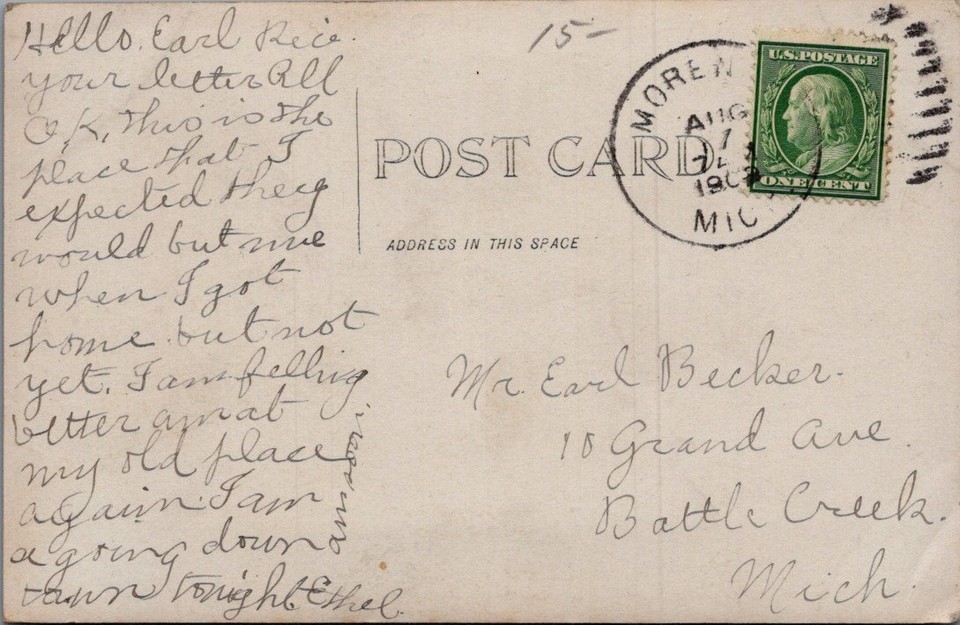 Hello. Earl Rec.
your letter All
O,K, this is the
place that I
expected they
would but me
when I got
home but not
yet. I am felling
better am at
my old place
again. I am
a going down
town tonight. Ethel.
ans soon.
15-
POST CARD
ADDRESS IN THIS SPACE
MOREN
AUG
1
190
MICH
U.S. POSTAGE
ONE CENT
Mr. Earl Becker.
10 Grand Ave.
Battle Creek.
Mich.